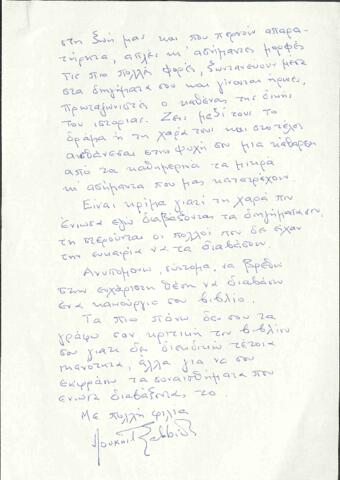 στη ζωή μας και που περνούν απαρα-
τήρητα, απλές κι' ασήμαντες μορφές
τις πιο πολλές φορές, ζωντανεύουν μεσα
στα διηγήματα σου και γίνονται ήρωες,
πρωταγωνιστές ο καθένας της δικής
του ιστορίας. Ζεις μαζί τους το
δράμα ή τη χαρά τους και στο τέλος
αισθάνεσαι στην ψυχή σου μια κάθαρση
από τα καθημερινά τα μικρά
κι' ασήμαντα που μας κατατρέχουν.
Είναι κρίμα γιατί τη χαρά που
ένιωσα εγώ διαβάζοντας τα διηγήματα σου,
τη στερούνται οι πολλοί που δε είχαν
την ευκαιρία να τα διαβάσουν.
Ανυπόμονω, σύντομα, να βρεθώ
στην ευχάριστη θέση να διαβάσω
ένα καινούργιο σου βιβλίο.
Τα πιο πάνω δεν σου τα
γράφω σαν κριτική του βιβλίου
σου γιατί δεν διεκδικώ τέτοια
ικανότητα, άλλα για να σου
εκφράσω τα συναισθήματα που
ένιωσα διαβάζοντας το.
Με πολλή φιλία